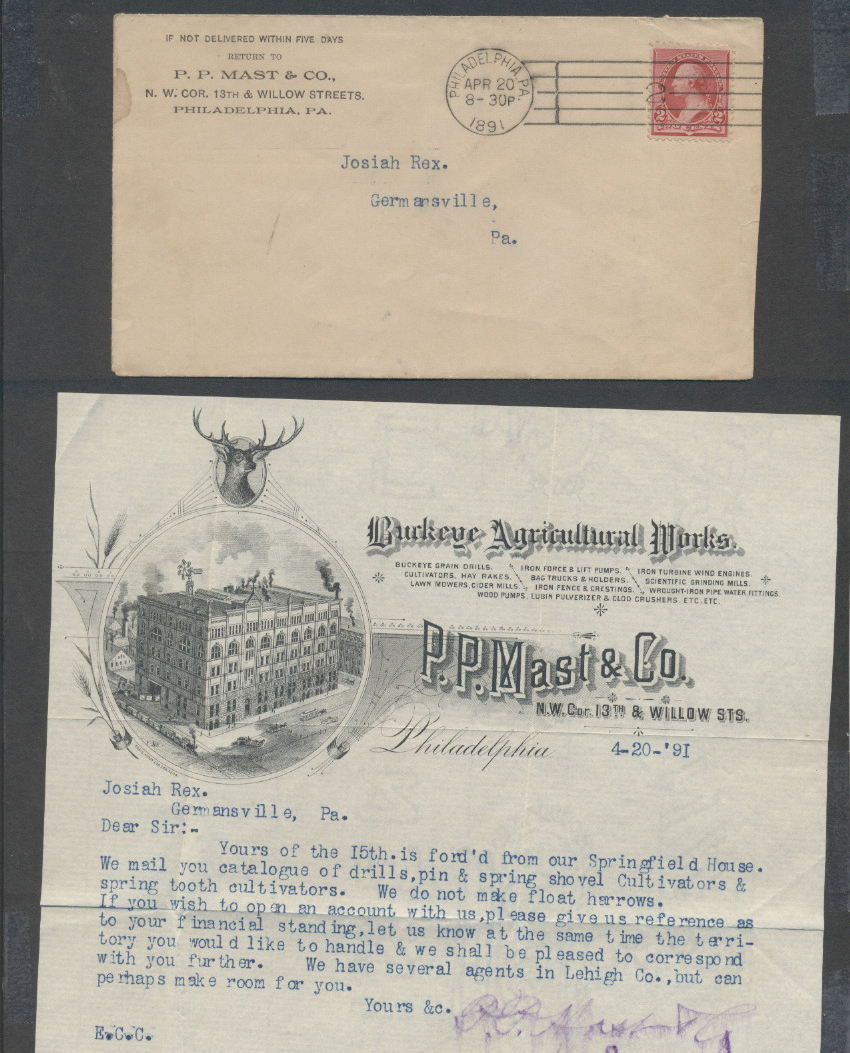 IF NOT DELIVERED WITHIN FIVE DAYS
RETURN TO
P. P. MAST & CO.,
N. W. COR. 13TH & WILLOW STREETS.
PHILADELPHIA, PA.
PHILADELPHIA, PA.
APR 20
8-30P.
1891
2 2
Josiah Rex.
Germansville,
Pa.
Buckeye Agricultural Works.
BUCKEYE GRAIN DRILLS. IRON FORCE & LIFT PUMPS. IRON TURBINE WIND ENGINES.
CULTIVATORS, HAY RAKES. BAG TRUCKS & HOLDERS. SCIENTIFIC GRINDING MILLS.
LAWN MOWERS, CIDER MILLS. IRON FENCE & CRESTINGS. WROUGHT-IRON PIPE, WATER FITTINGS.
WOOD PUMPS, LUBIN PULVERIZER & CLOD CRUSHERS, ETC. ETC.
P.P. Mast & Co.
N.W. Cor. 13TH & WILLOW STS.
Philadelphia 4-20-'9I
Josiah Rex.
Germansville, Pa.
Dear Sir:-
Yours of the I5th.is ford'd from our Springfield House.
We mail you catalogue of drills,pin & spring shovel Cultivators &
spring tooth cultivators. We do not make float harrows.
If you wish to open an account with us,please give us reference as
to your financial standing,let us know at the same time the terri-
tory you would like to handle & we shall be pleased to correspond
with you further. We have several agents in Lehigh Co.,but can
perhaps make room for you.
Yours &c. P.P. Mast & Co
E.C.C.